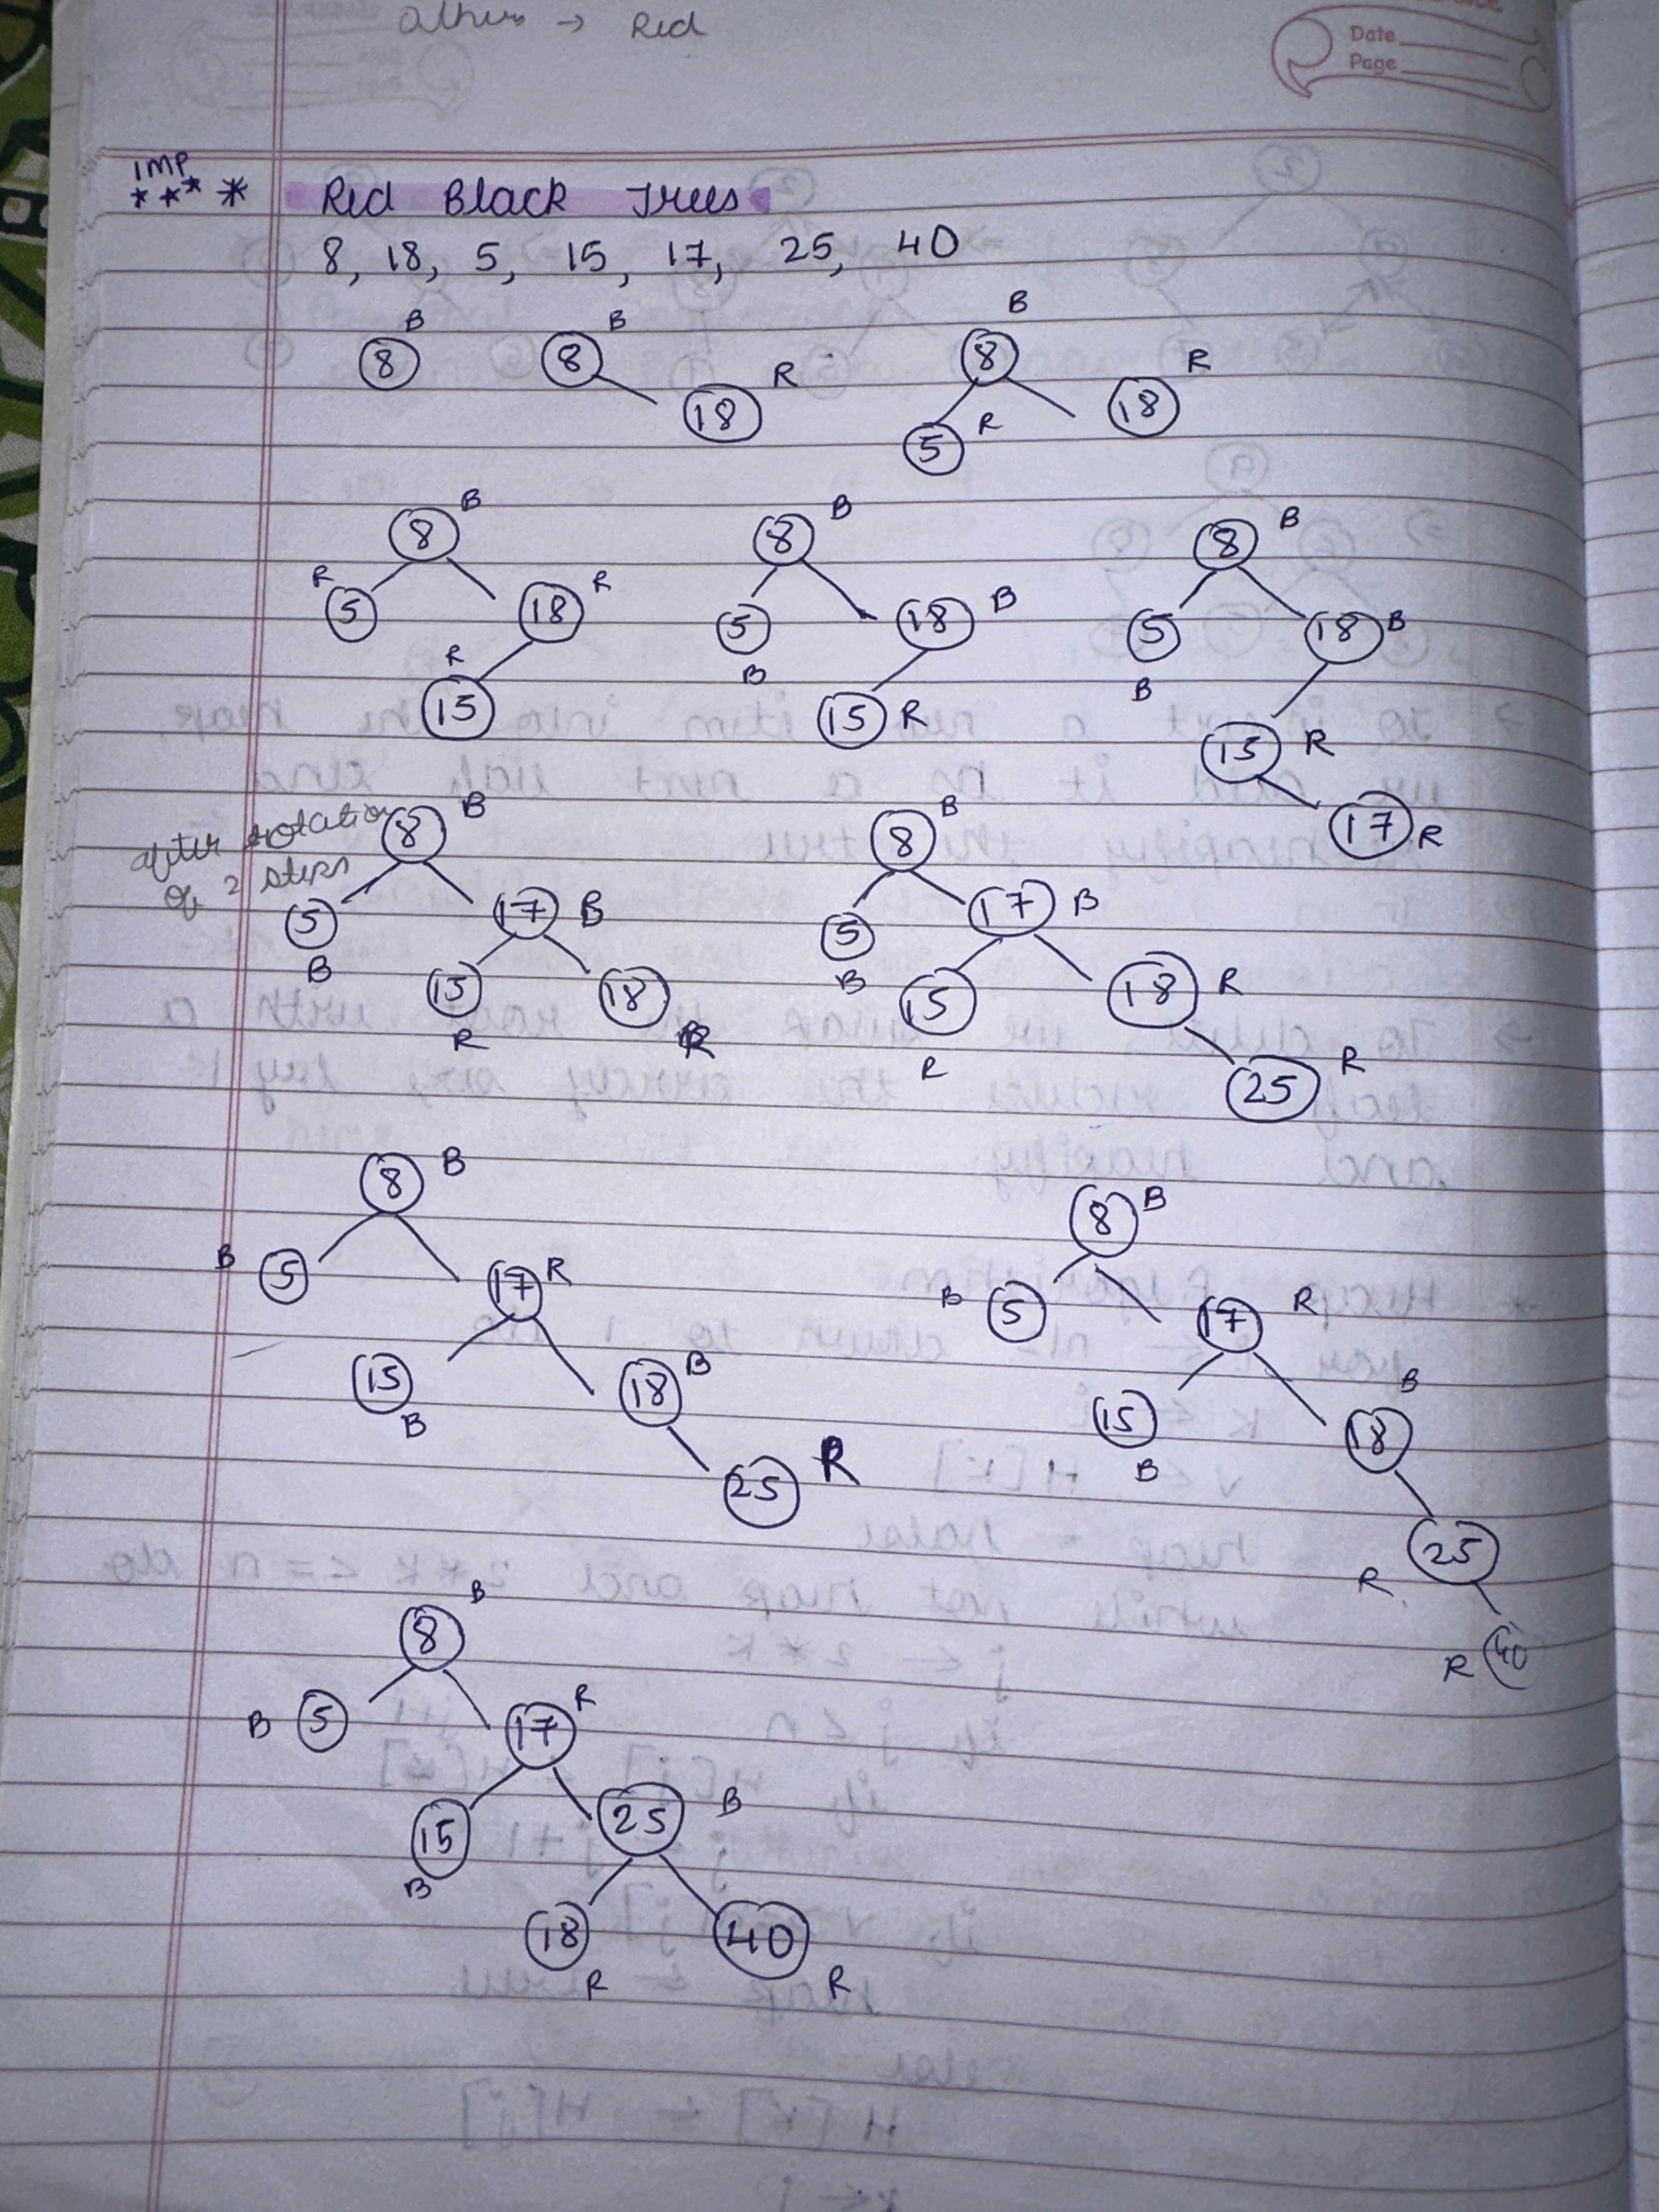 others → Red
Date
Page
IMP
* * * * Red Black Trees
8, 18, 5, 15, 17, 25, 40
B B B
8 8 R 8 R
18 5 R 18
B B B
8 8 8
R 5 18 R 5 18 B 5 18 B
R B B
15 15 R 15 R
17 R
after rotation of 2 steps
B B
8 8
5 17 B 5 17 B
B 15 18 B 15 18 R
R R R 25 R
8 B 8 B
B 5 17 R B 5 17 R
15 18 B 15 18 B
B 25 R B 25
R
R 40
B
8
B 5 17 R
15 25 B
B
18 40
R R